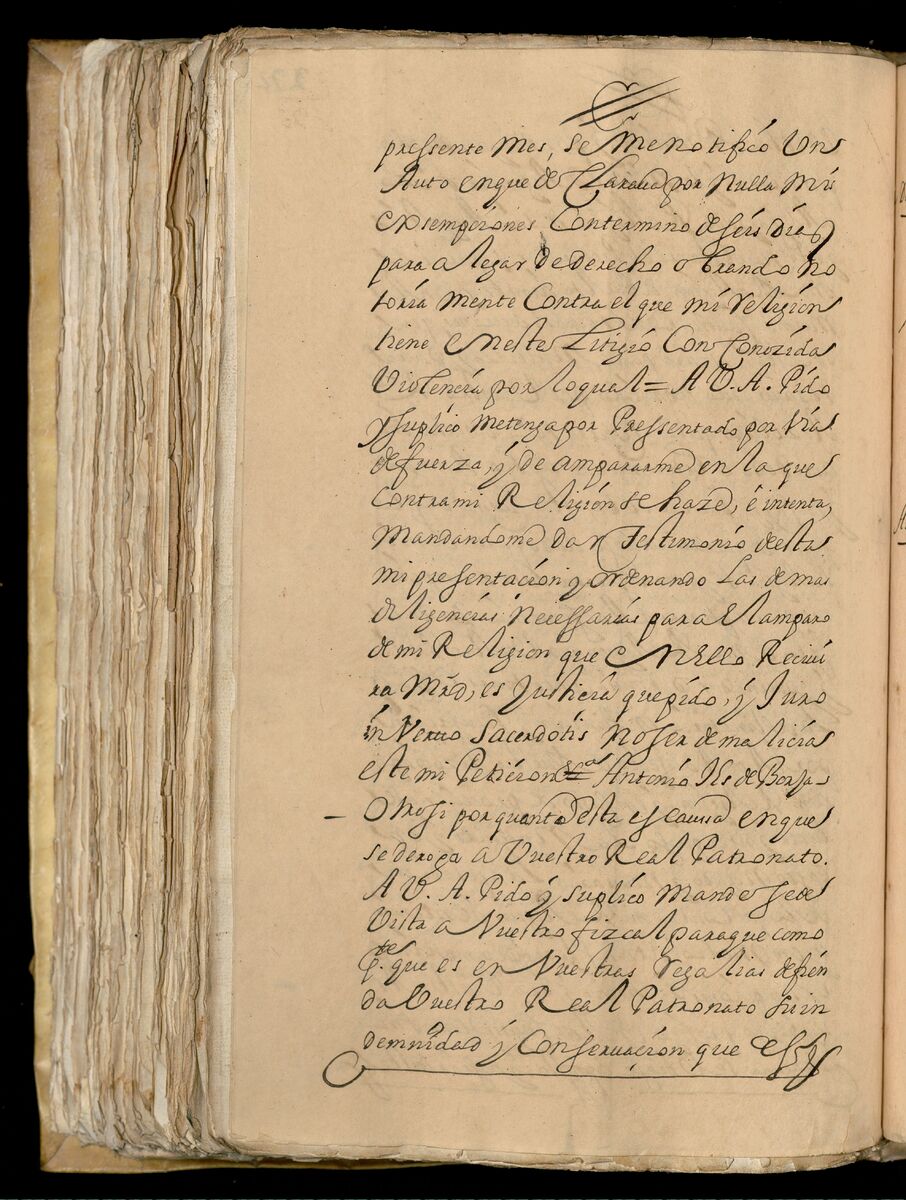 pressente mes, se me notificó Un
Auto en que de Claraua por Nulla mis
exsempciones Contermino de seis dias
para a legar de derecho obrando no
toria mente Contra el que mi religion
tiene En este Litigio Con Conozida
Violencia por lo qual = A V. A. Pido
y suplico me tenga por Pressentado por via
de fuerza, y de ampararme en la que
Contra mi Religión se haze, é intenta,
Mandandome dar Testimonio de esta
mi presentación y ordenando Las demas
diligencias Necessarias para El amparo
de mi Religion que En Ello Reciui
ra Mrd, es Justicia que pido, y Juro
in Veruo Sacerdotis No ser de malicia
este mi Petición Antonio Ils de Borja -
- Otrosi por quanto Esta es causa en que
se deroga a Vuestro Real Patronato.
A V. A. Pido y suplico Mande se de
Vista a Vuestro fizcal para que como
pte. que es en Vuestras regalias defien
da Vuestro Real Patronato su in
demnidad y Conseruaçion que es